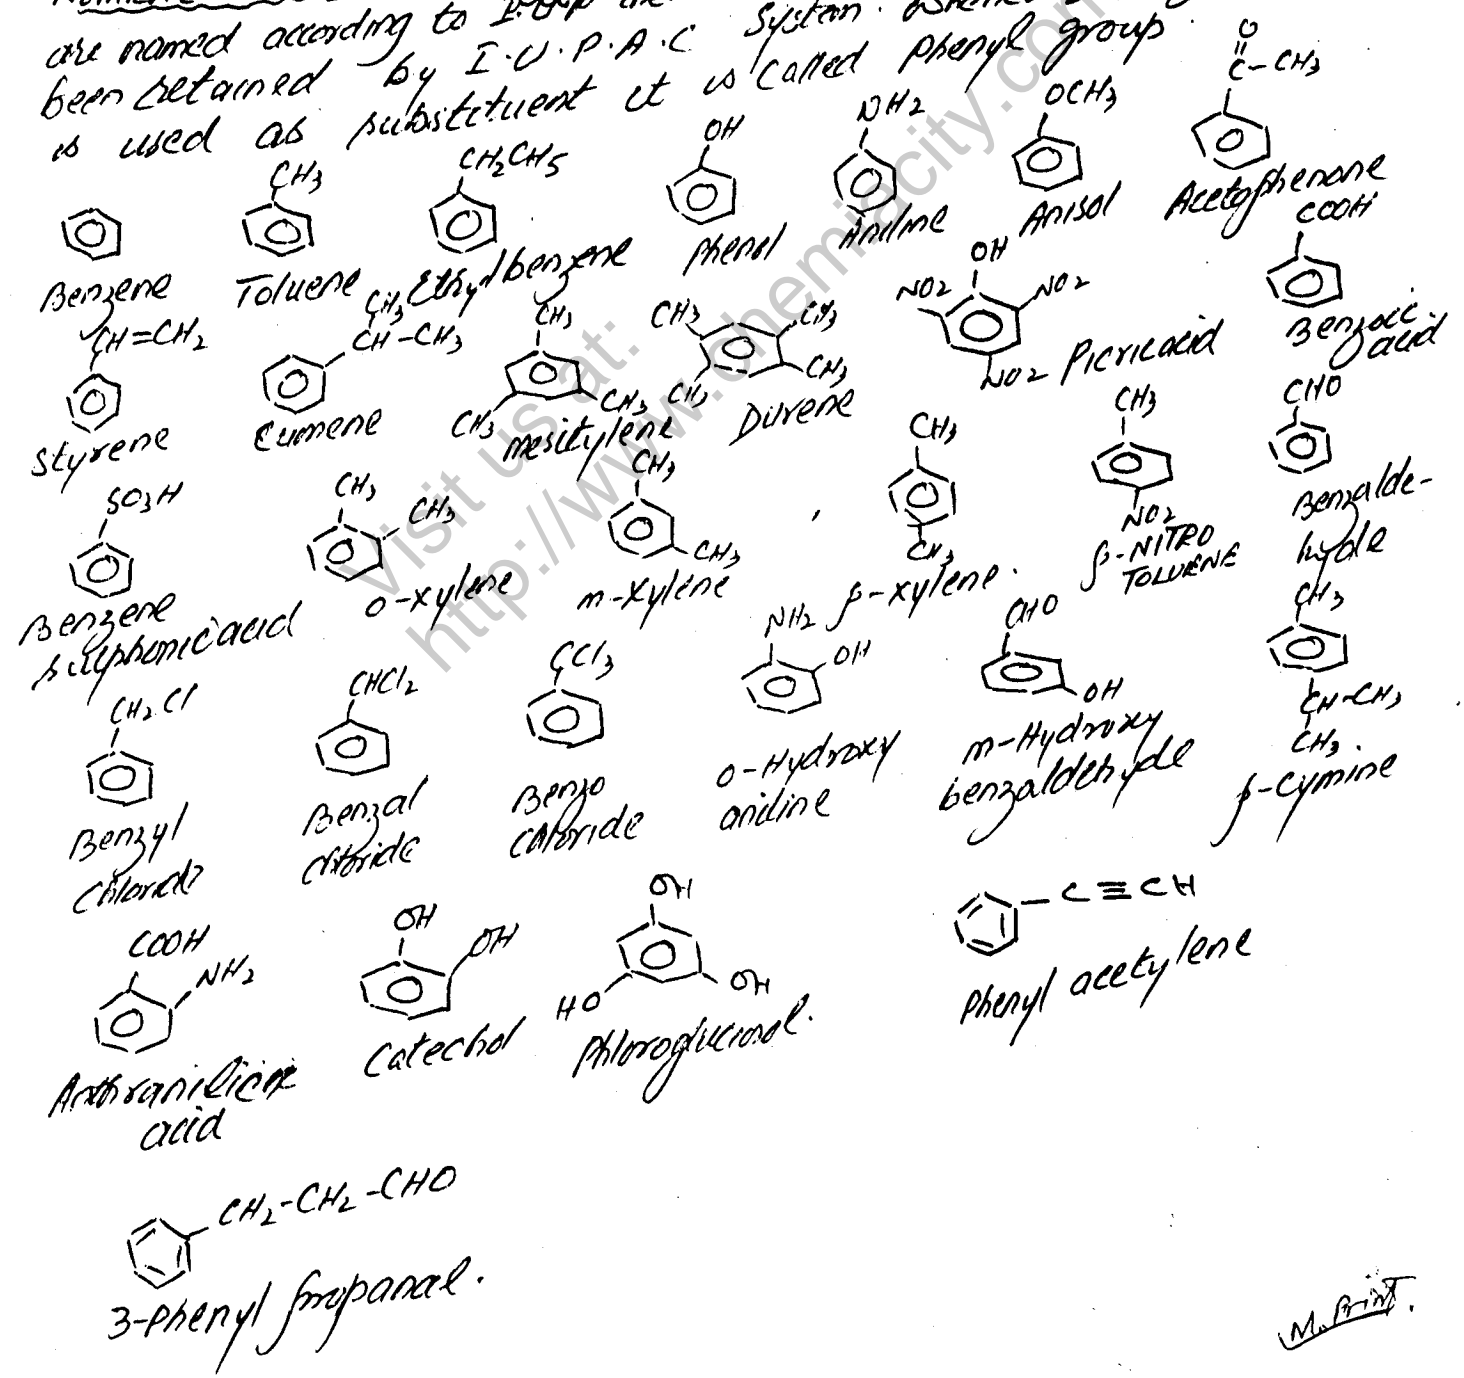 are named according to
been retained by I.U.P.A.C System.
is used as substituent it is called phenyl group.
O
C-CH3
CH3 CH2CH5 OH NH2 OCH3
Benzene Toluene Ethyl benzene Phenol Aniline Anisol Acetophenone
CH=CH2 CH3 CH-CH3 CH3 CH3 CH3 CH3 CH3 CH3 CH3 OH NO2 NO2 NO2 COOH
Styrene Cumene Mesitylene Durene Picric acid Benzoic
acid
SO3H CH3 CH3 CH3 CH3 CH3 CH3 CH3 NO2 CHO
Benzene
sulphonic acid o-xylene m-xylene p-xylene. p-NITRO
TOLUENE Benzalde-
hyde
CH2Cl CHCl2 CCl3 NH2 OH CHO OH CH3 CH-CH3 CH3
Benzyl
chloride Benzal
chloride Benzo
chloride o-Hydroxy
aniline m-Hydroxy
benzaldehyde p-Cymine
COOH NH2 OH OH OH OH HO C≡CH
Anthranilic
acid Catechol Phloroglucinol. Phenyl acetylene
CH2-CH2-CHO
3-Phenyl propanal.
M. Print.
Visit us at:
http://www.chemiacity.com